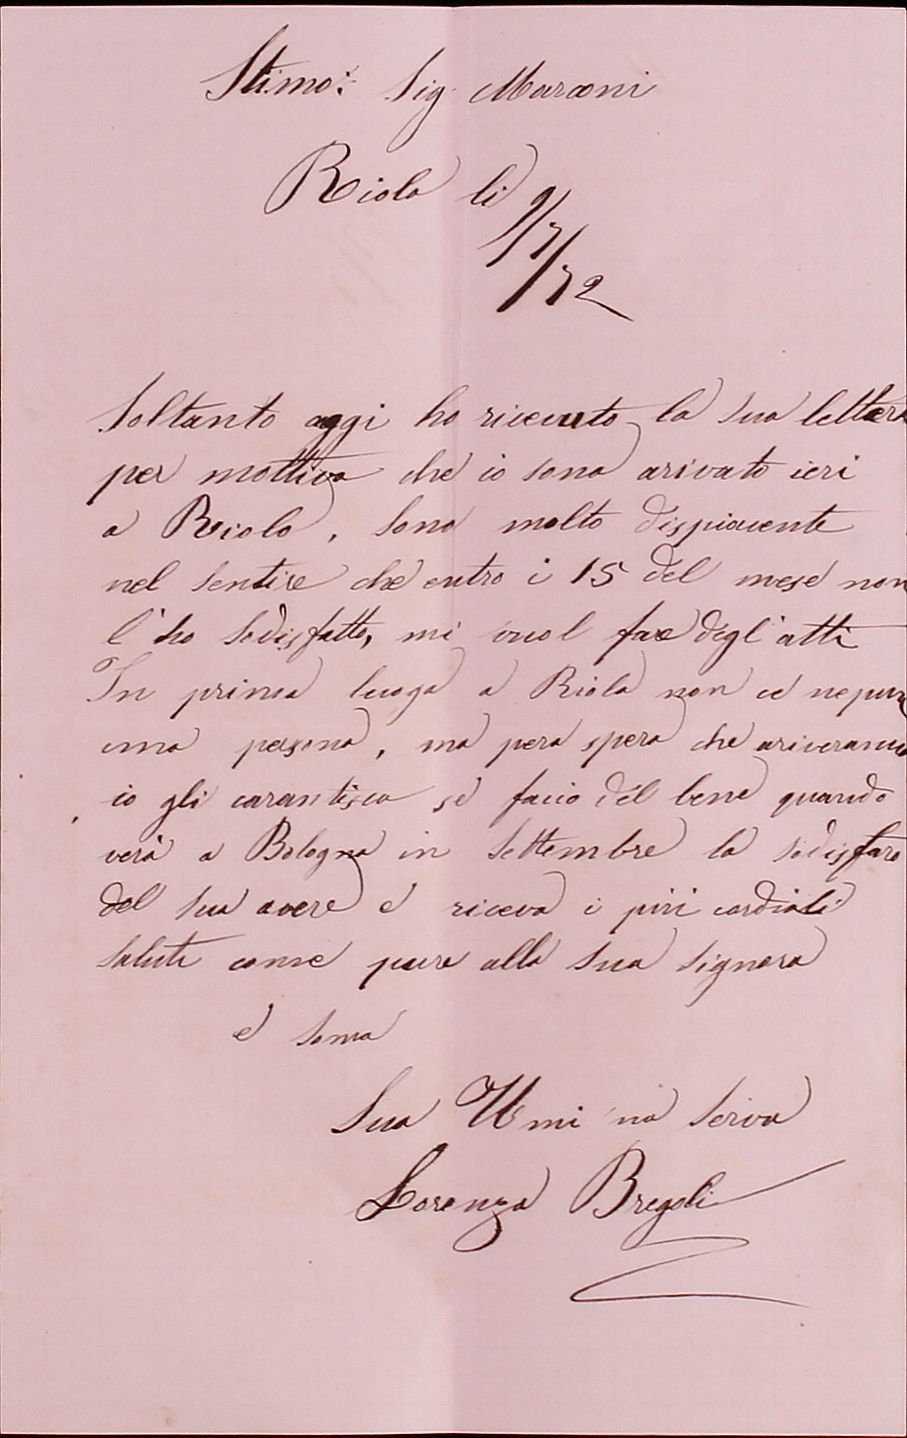 Stimo: Sig. Marconi
Riola li
9/7/72
Soltanto oggi ho ricevuto la sua lettera
per mottivo che io sono arivato ieri
a Riolo, sono molto dispiacente
nel sentire che entro i 15 del mese non
l'ho sodisfatto, mi vuol fare degl'atti
In primo luogo a Riola non ce nepure
una persona, ma pero spero che ariverano
io gli carantisco se facio del bene quando
verà a Bologna in Settembre la sodisfaro
del suo avere e riceva i più cordiali
saluti come pure alla sua signora
e sono
Suo Umi no Servo
Lorenzo Bregoli